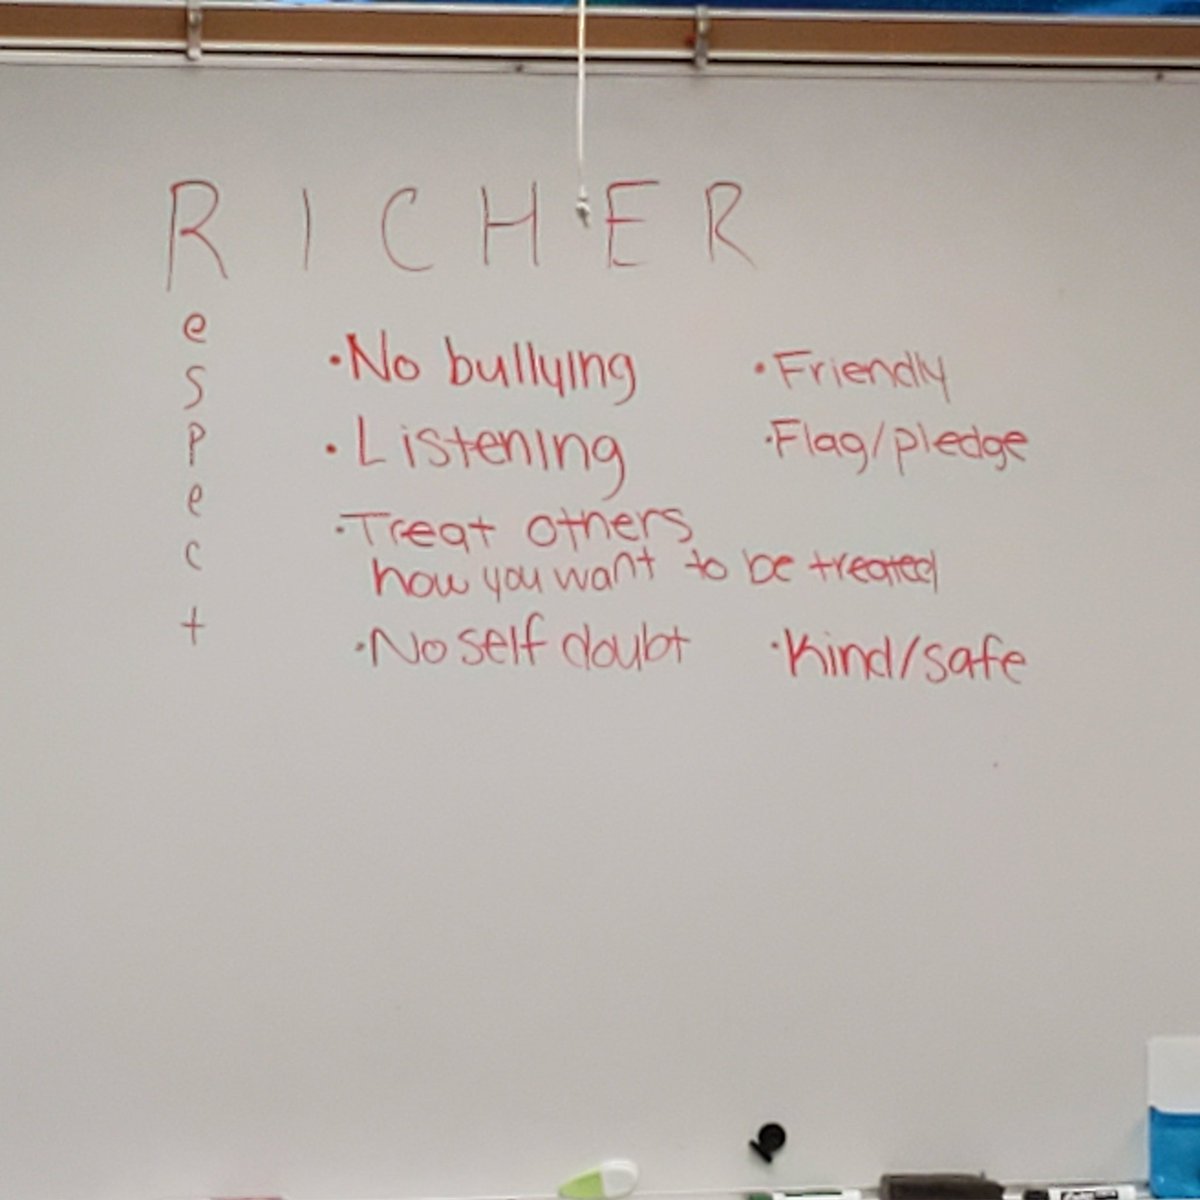 RICHER
e
s
p
e
c
t
• No bullying
• Friendly
• Listening
• Flag/pledge
• Treat others
how you want to be treated
• No self doubt
• Kind/safe